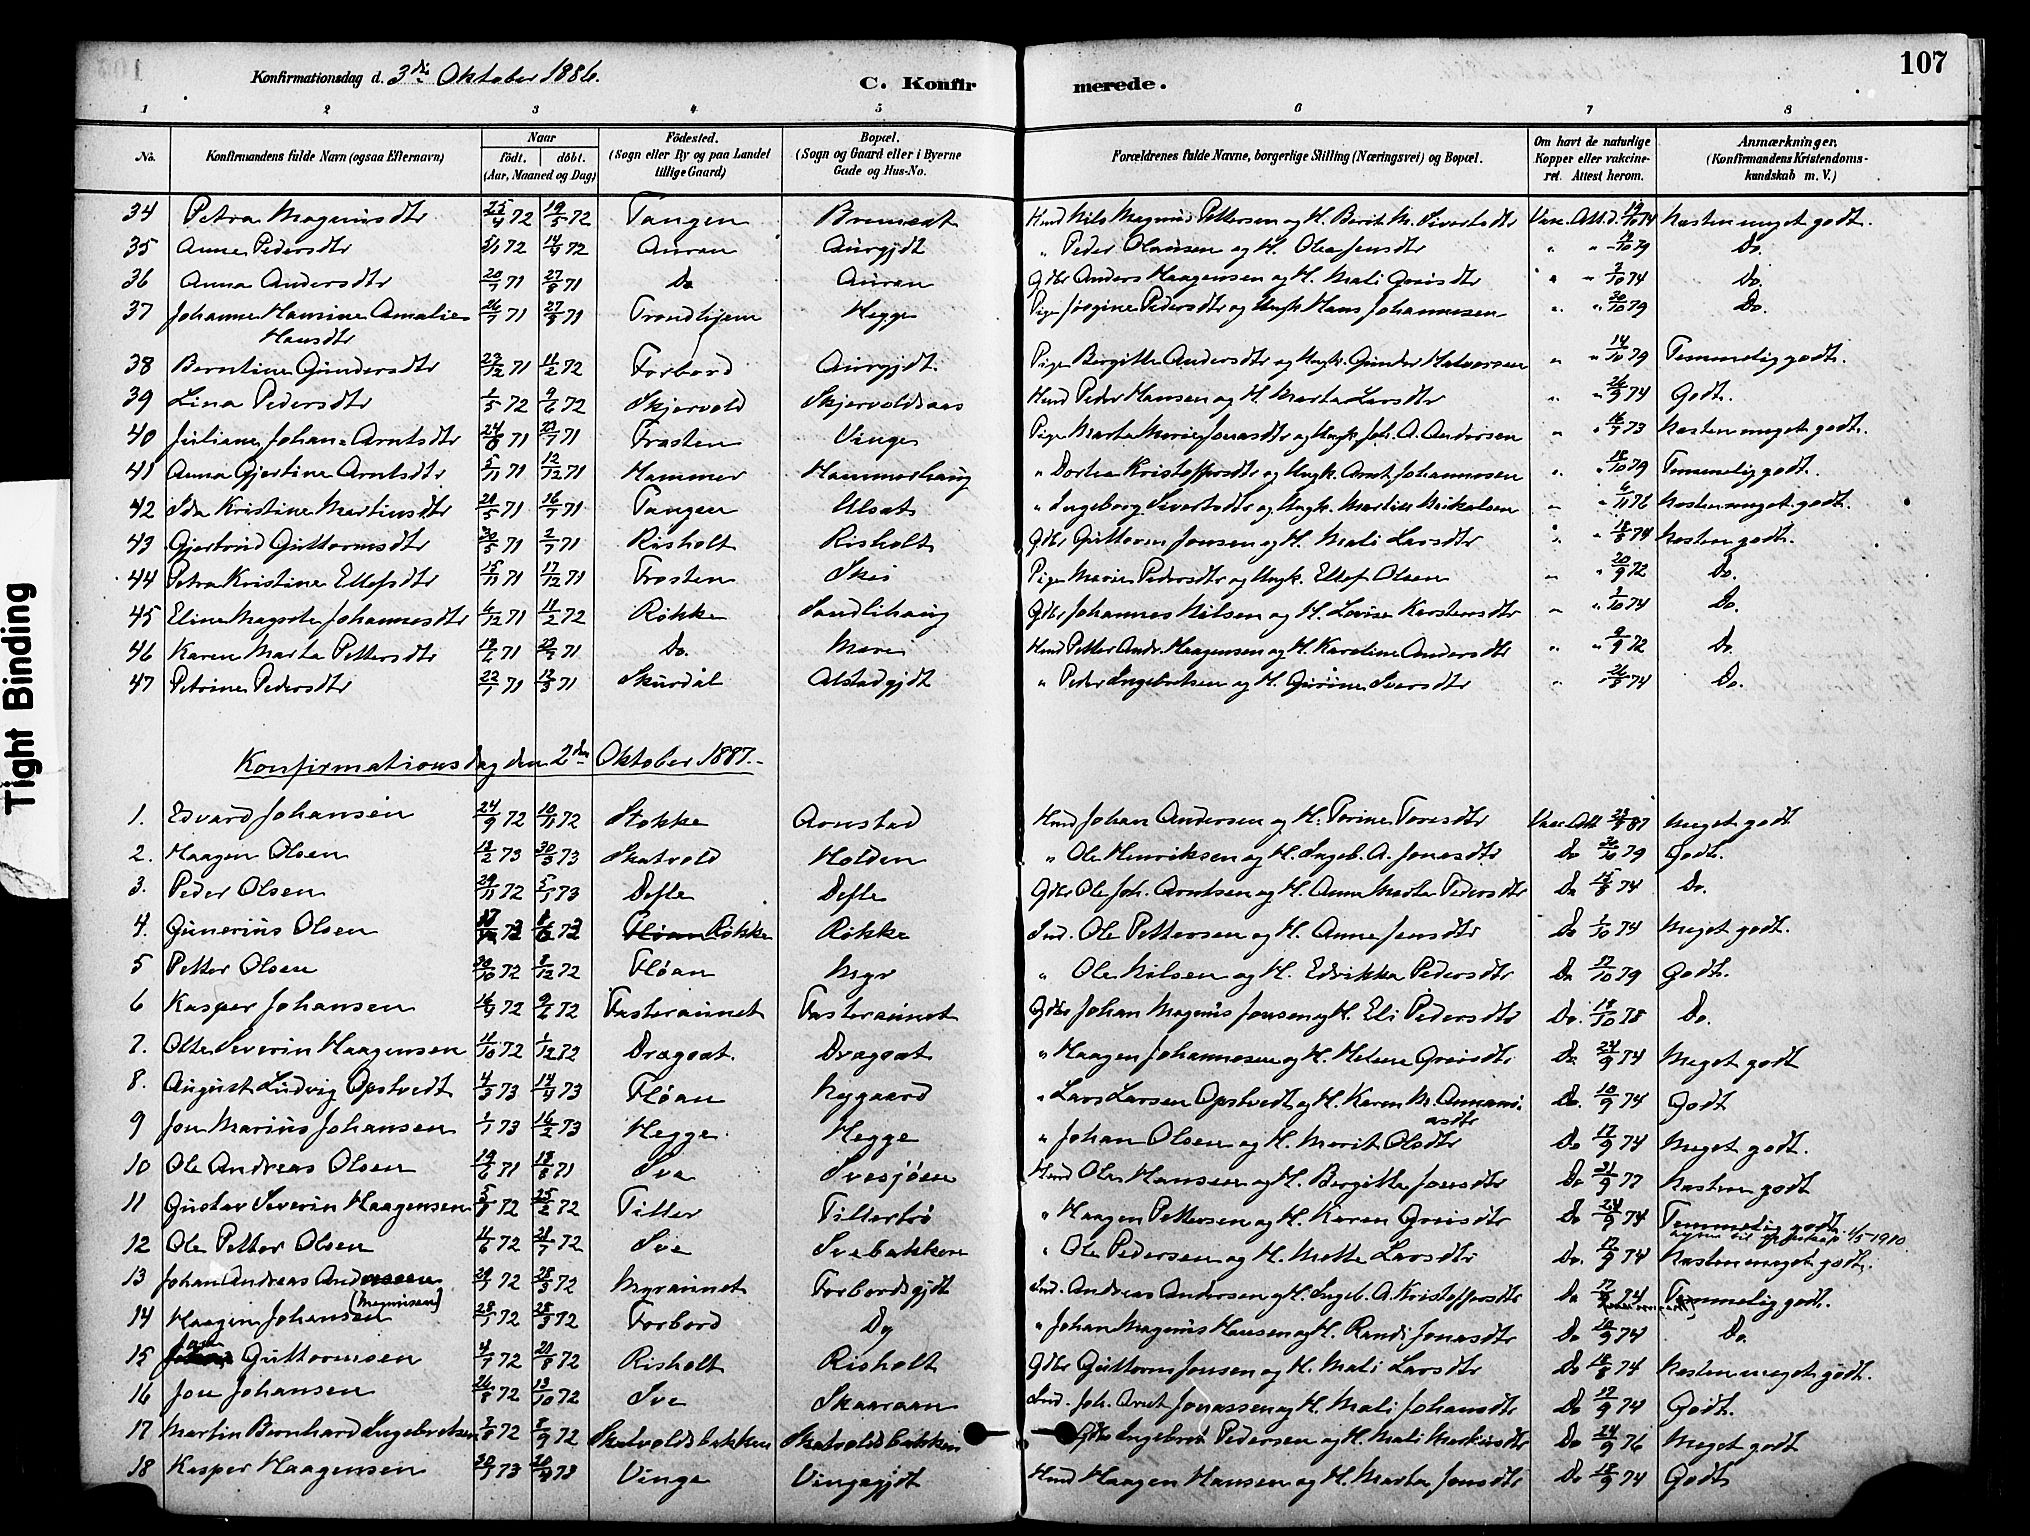 107
Konfirmationsdag d. 3die Oktober 1886.
C. Konfirmerede.
1 2 3 4 5 6 7 8
No. Konfirmandens fulde Navn (ogsaa Efternavn) Naar født. døbt. (Aar, Maaned og Dag) Fødested. (Sogn eller By og paa Landet tillige Gaard) Bopæl. (Sogn og Gaard eller i Byerne Gade og Hus-No. Forældrenes fulde Navne, borgerlige Stilling (Næringsvei) og Bopæl. Om havt de naturlige Kopper eller vakcineret. Attest herom. Anmærkninger. (Konfirmandens Kristendomskundskab m. V.)
34 Petra Magnusdtr 25/4 72 19/5 72 Tangen Hmd Nils Magnus Pettersen og H. Berit M. Sivertsdtr Vac. Att. d. 19/10 74 Næsten meget godt.
35 Anne Pedersdtr 72 14/4 72 Auran Aurgjdt " Peder Olausen og H. Olea Jensdtr " " 79 Do.
36 Anna Andersdtr 20/7 71 27/8 71 Do Auran Gdbr Anders Haagensen og H. Mali Greisdtr " " 74 Do.
37 Johanne Hansine Amalie Hansdtr 26/7 71 27/8 71 Trondhjem Hegge Pige Jørgine Pedersdtr og Ungk. Hans Johannesen " " 20/10 79 Do.
38 Berntine Gundersdtr 23/12 71 11/2 72 Forbord Aurgjdt. Pige Birgitte Andersdtr og Ungk. Gunder Halvorsen " " 14/10 79 Temmelig godt.
39 Lina Pedersdtr 1/5 72 9/6 72 Skjervold Skjervoldsaas Hmd Peder Hansen og H. Marta Larsdtr " " 26/9 74 Godt.
40 Juliane Johana Arntsdtr 24/6 71 71 Frosten Vinge Pige Marta Marie Jonasdtr og Ungk. Joh. A. Andersen " " 73 Næsten meget godt.
41 Anna Gjertine Arntsdtr 5/11 71 12/12 71 Hammer Hammerhaug " Dortea Kristoffersdtr og Ungk. Arnt Johannesen " " 18/10 79 Temmelig godt.
42 Ida Kristine Martinsdtr 28/5 71 16/7 71 Tangen Ulsat " Ingeborg Sivertsdtr og Ungk. Martin Mikalsen " " 6/11 76 Næsten meget godt.
43 Gjertrud Guttormsdtr 30/5 71 2/7 71 Risholt Risholt Gdbr Guttorm Jonsen og H. Mali Larsdtr " " 18/8 74 Næsten godt.
44 Petra Kristine Ellefsdtr 15/11 71 17/12 71 Frosten Skei Pige Marie Pedersdtr og Ungk. Ellef Olsen " " 20/9 72 Do.
45 Eline Magrete Johannesdtr 6/12 71 11/2 72 Røkke Sandlihaug Gdbr Johannes Nilsen og H. Lovise Karstensdtr " " 74 Do.
46 Karen Marta Pettersdtr 71 71 Do. Mære Hmd Petter Andr. Haagensen og H. Karoline Andersdtr " " 9/9 72 Do.
47 Petrine Pedersdtr 22/1 71 12/3 71 Skurdal Alstadgjdt " Peder Ingebretsen og H. Gurine Iversdtr " " 74 Do.
Konfirmationsdag den 2den Oktober 1887.
1. Edvard Johansen 24/9 72 10/11 72 Stokke Arnstad Hmd Johan Andersen og H. Torine Toresdtr Vac. Att. 87 Meget godt
2. Haagen Olsen 18/2 73 30/3 73 Skatvold Holden " Ole Henriksen og H. Ingeb. A. Jonasdtr Do 79 Godt.
3. Peder Olsen 29/11 72 5/1 73 Defle Defle Gdbr Ole Joh. Arntsen og H. Anne Marta Pedersdtr Do 15/8 74 Do.
4. Gunerius Olsen 72 72 Fløan Røkke Røkke Ind. Ole Pettersen og H. Anne Jensdtr Do 1/10 74 Meget godt.
5 Petter Olsen 30/10 72 8/12 72 Fløan Myr " Ole Nilsen og H. Edrikka Pedersdtr Do 17/10 79 Godt.
6 Kasper Johansen 16/4 72 9/6 72 Fasteraunet Fasteraunet Gdbr Johan Magnus Jonsen og H. Eli Pedersdtr Do. 18/10 78 Do.
7. Otte Severin Haagensen 11/10 72 1/12 72 Drageat. Drageat " Haagen Johannesen og H. Helene Greisdtr Do. 24/9 74 Meget godt
8. August Ludvig Opstvedt 4/3 73 14/4 73 Fløan Nygaard " Lars Larsen Opstvedt og H. Karen M. Annaniasdtr Do. 10/9 74 Godt
9 Jon Marius Johansen 1/1 73 16/2 73 Hegge Hegge " Johan Olsen og H. Marit Olsdtr Do 17/9 74 Meget godt.
10 Ole Andreas Olsen 19/6 71 13/8 71 Sve Svesjøen Hmd Ole Hansen og H. Birgitte Jonsdtr Do 21/9 77 Næsten godt
11 Gustav Severin Haagensen 72 25/2 72 Tiller Tillerbrø " Haagen Pettersen og H. Karen Greisdtr Do 24/9 74 Temmelig godt.
12 Ole Petter Olsen 11/6 72 21/7 72 Sve Svebakken " Ole Pedersen og H. Mette Larsdtr Do. 17/9 74 1/5-1910 Næsten meget godt.
13 Johan Andreas Andersen 29/1 72 28/3 72 Myraunet Forbordsgjdt Ind. Andreas Andersen og H. Ingeb. A. Kristoffersdtr Do 17/9 74 Temmelig godt.
14 Haagen Johansen (Magnusen) 28/1 72 28/3 72 Forbord Do " Johan Magnus Hansen og H. Randi Jonasdtr Do 10/9 74 Do.
15 Guttormsen 4/7 72 20/8 72 Risholt Risholt Gdbr Guttorm Jonsen og H. Mali Larsdtr Do 18/8 74 Næsten meget godt.
16 Jon Johansen 26/8 72 13/10 72 Sve Skaaraan Ind. Joh. Arnt Jonassen og H. Mali Johansdtr Do 17/9 74 Godt.
17 Martin Bernhard Ingebretsen 72 8/9 72 Skatvoldsbakken Skatvoldsbakken Gdbr Ingebret Pedersen og H. Mali Markusdtr Do 24/9 76 Meget godt
18 Kasper Haagensen 30/1 73 73 Vinge Vingegjdt Hmd Haagen Hansen og H. Marta Jonsdtr Do 18/9 74 Godt
Tight Binding